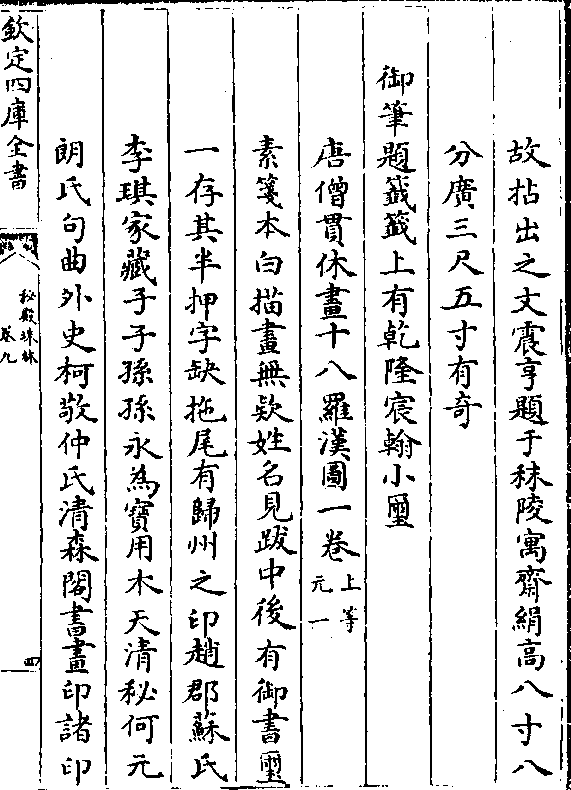 故拈出之文震亨題于秣陵寓齋絹高八寸八
分廣三尺五寸有奇
御筆題籤籤上有乾隆宸翰小璽
唐僧貫休畫十八羅漢圖一卷上等元一
素箋本白描畫無款姓名見跋中後有御書璽
一存其半押字缺拖尾有歸州之印趙郡蘇氏
李琪家藏子子孫孫永為寶用木天清秘何元
朗氏句曲外史柯敬仲氏清森閣書畫印諸印
欽定四庫全書
秘殿珠林
卷九
四